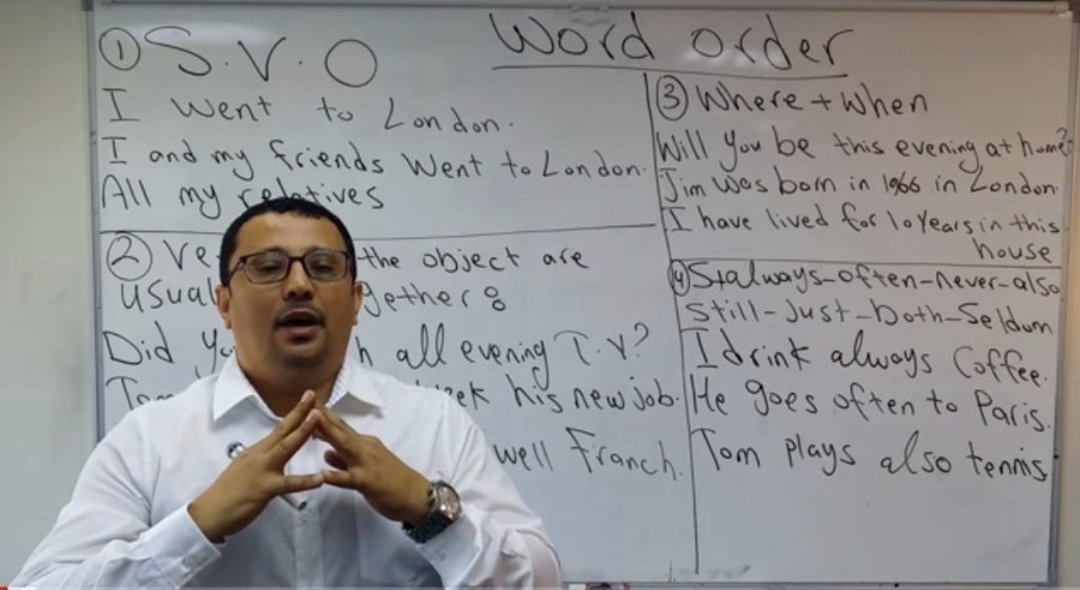 Word order
① S.V.O
I went to London.
I and my friends Went to London.
All my relatives
② the object are
usual gether :
Did all evening T.V?
his new job.
well Franch.
③ Where + When
Will you be this evening at home?
Jim was born in 1966 in London.
I have lived for 10 years in this
house
④ always - often - never - also
Still - Just - both - Seldum
I drink always Coffee.
He goes often to Paris.
Tom plays also tennis